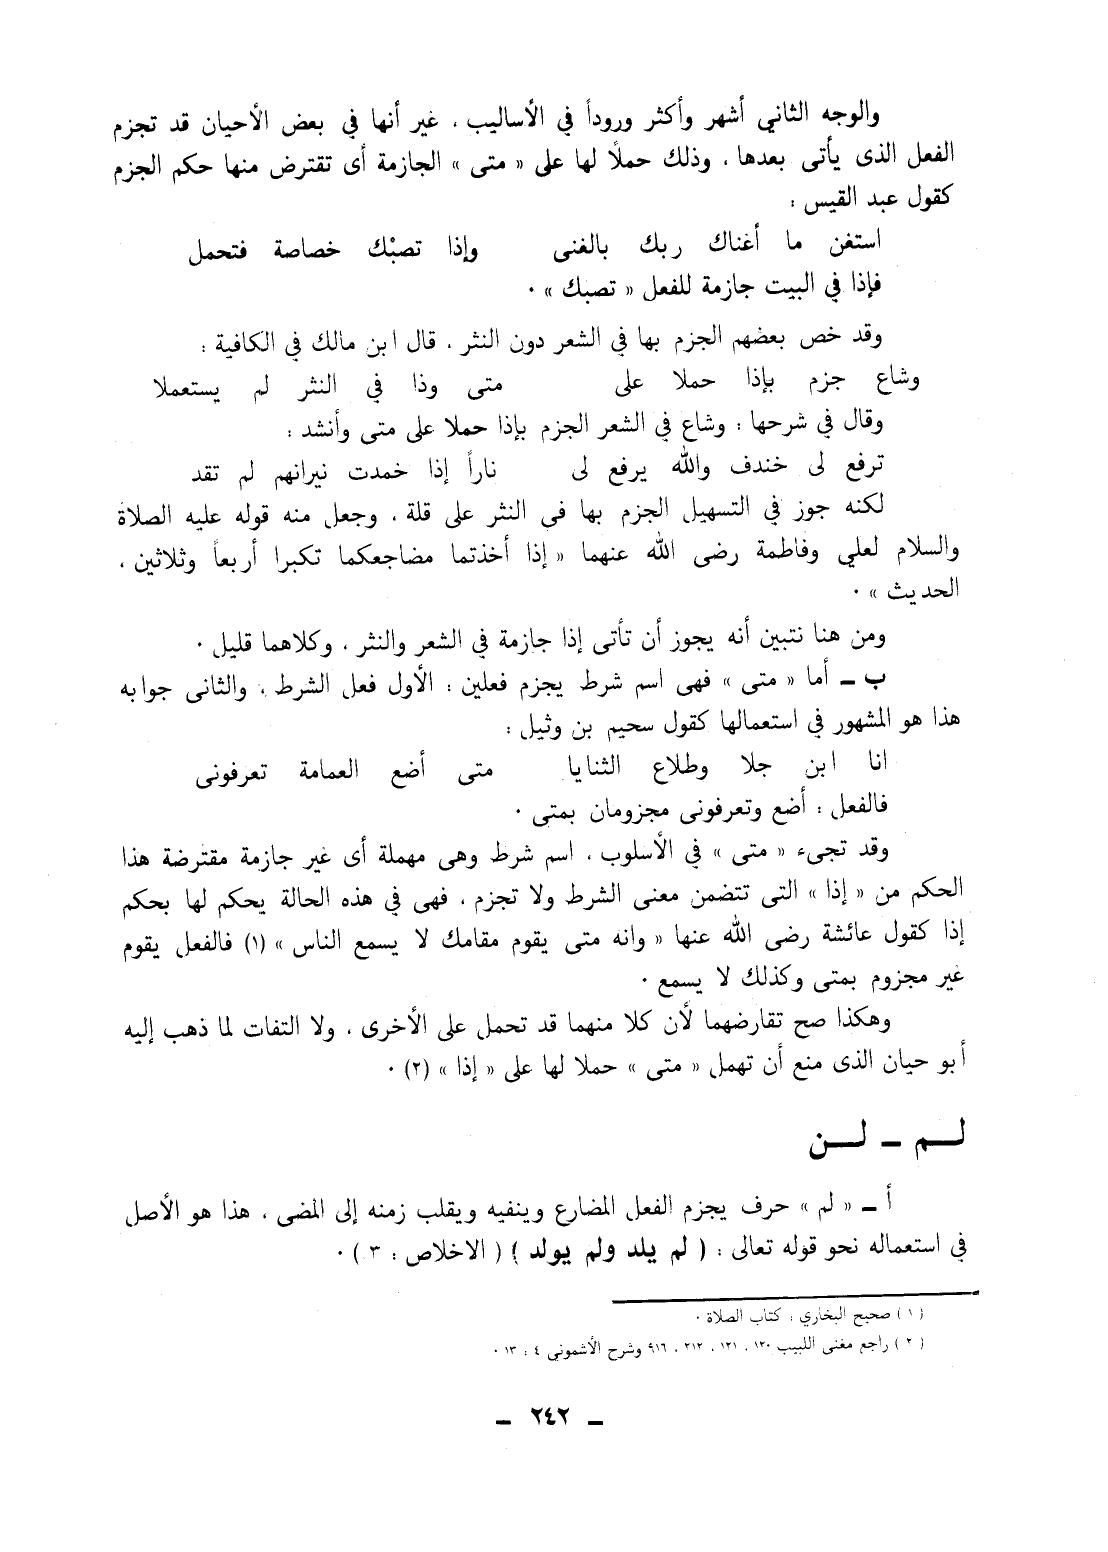 والوجه الثاني أشهر وأكثر وروداً في الأساليب ، غير أنها في بعض الأحيان قد تجزم
الفعل الذى يأتى بعدها ، وذلك حملًا لها على « متى » الجازمة أى تقترض منها حكم الجزم
كقول عبد القيس :
استغن ما أغناك ربك بالغنى وإذا تصبْك خصاصة فتحمل
فإذا في البيت جازمة للفعل « تصبك » ٠
وقد خص بعضهم الجزم بها في الشعر دون النثر ، قال ابن مالك في الكافية :
وشاع جزم بإذا حملا على متى وذا في النثر لم يستعملا
وقال في شرحها : وشاع في الشعر الجزم بإذا حملا على متى وأنشد :
ترفع لى خندف والله يرفع لى ناراً إذا خمدت نيرانهم لم تقد
لكنه جوز في التسهيل الجزم بها فى النثر على قلة ، وجعل منه قوله عليه الصلاة
والسلام لعلي وفاطمة رضى الله عنهما « إذا أخذتما مضاجعكما تكبرا أربعاً وثلاثين ،
الحديث » ٠
ومن هنا نتبين أنه يجوز أن تأتى إذا جازمة في الشعر والنثر ، وكلاهما قليل ٠
ب ــ أما « متى » فهى اسم شرط يجزم فعلين : الأول فعل الشرط ، والثانى جوابه
هذا هو المشهور في استعمالها كقول سحيم بن وثيل :
انا ابن جلا وطلاع الثنايا متى أضع العمامة تعرفونى
فالفعل : أضع وتعرفونى مجزومان بمتى ٠
وقد تجىء « متى » في الأسلوب ، اسم شرط وهى مهملة أى غير جازمة مقترضة هذا
الحكم من « إذا » التى تتضمن معنى الشرط ولا تجزم ، فهى في هذه الحالة يحكم لها بحكم
إذا كقول عائشة رضى الله عنها « وانه متى يقوم مقامك لا يسمع الناس » (١) فالفعل يقوم
غير مجزوم بمتى وكذلك لا يسمع ٠
وهكذا صح تقارضهما لأن كلا منهما قد تحمل على الأخرى ، ولا التفات لما ذهب إليه
أبو حيان الذى منع أن تهمل « متى » حملا لها على « إذا » (٢) ٠
لــم ــ لــن
أ ــ « لم » حرف يجزم الفعل المضارع وينفيه ويقلب زمنه إلى المضى ، هذا هو الأصل
في استعماله نحو قوله تعالى : ( لم يلد ولم يولد ) ( الاخلاص : ٣ ) ٠
( ١ ) صحيح البخاري : كتاب الصلاة ٠
( ٢ ) راجع مغنى اللبيب ١٢٠ ، ١٢١ ، ٢١٢ ، ٩١٦ وشرح الأشمونى ٤ : ١٣ ٠
ــ ٢٤٢ ــ